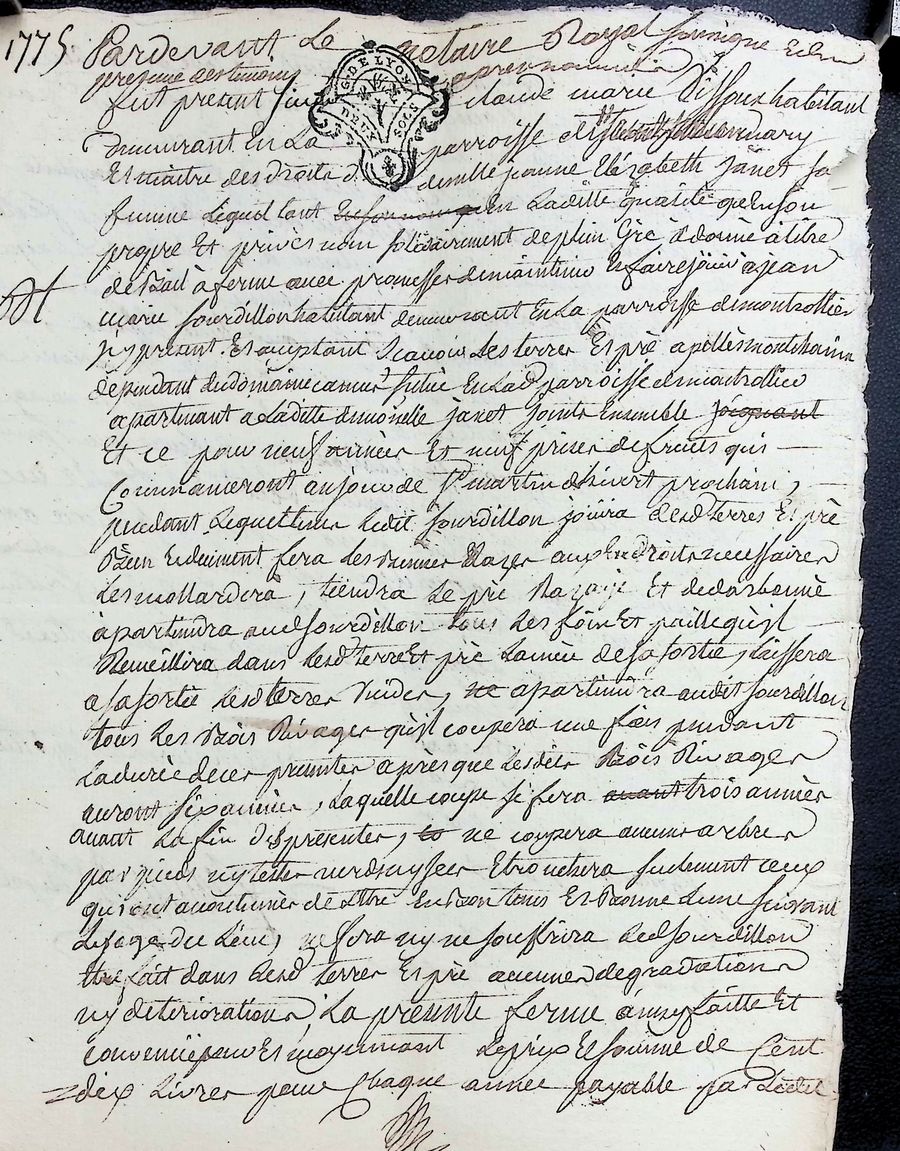 1775 Pardevant Le notaire Royal soussigné et en
presence des temoins apres nommés
fut present sieur claude marie Dissoux habitant
Demeurant En La parroisse de
Et maitre des droits de demlle jeanne Elizabeth janet sa
femme Lequel tant En Laditte qualité que En son
propre Et privés nom solidairement de plein gré a donné a titre
de Bail a ferme avec promesse de maintenir Et faire joüir a jean
marie sourdillon habitant demeurant En La parroisse de montrottier
jcy present Et acceptant Scavoir Les terres Et pré apellés montchaina
dependant du domaine camus Situé En Lad parroisse de montrottier
apartenant a Laditte demoiselle janet joints Ensemble joignant
Et ce pour neuf années Et neuf prises de fruits qui
Commanceront au jour de St martin d'hivert prochain,
pendant Lequel tems Ledit Sourdillon joüira desd terres Et pré
Bien Et deument fera Les Bonnes Razes aux Endroits necessaires
Les mollardera, tiendra Le pré Et
apartiendra aud sourdillon tous Les foin Et paille qu'jl
Receuillira dans Lesd terre Et pré La année de sa sortie, Laissera
a sa sortie Lesd terres Vuides, ne apartiendra audit sourdillon
tous Les Bois Rivages qu'jl coupera une fois pendant
La durée de ces presentes apres que Lesdits Bois Rivages
auront six années, Laquelle coupe se fera avant trois années
avant La fin des presentes, ne coupera aucuns arbres
par pieds ny tettes verds ny secs Etronchera seulement ceux
qui ont acoutumés de Lettre En Bon tems Et Bonne Lune suivant
Lusage du Lieu, ne fera ny ne souffrira Led sourdillon
Etre fait dans Lesd terres Et pré aucunes degradations
ny deteriorations, La presente ferme ainsy faitte Et
convenüe pour Et moyennant Le prix Et somme de Cent
dix Livres pour Chaque année payable par Ledit
G. DE LYON
DEUX SOLS